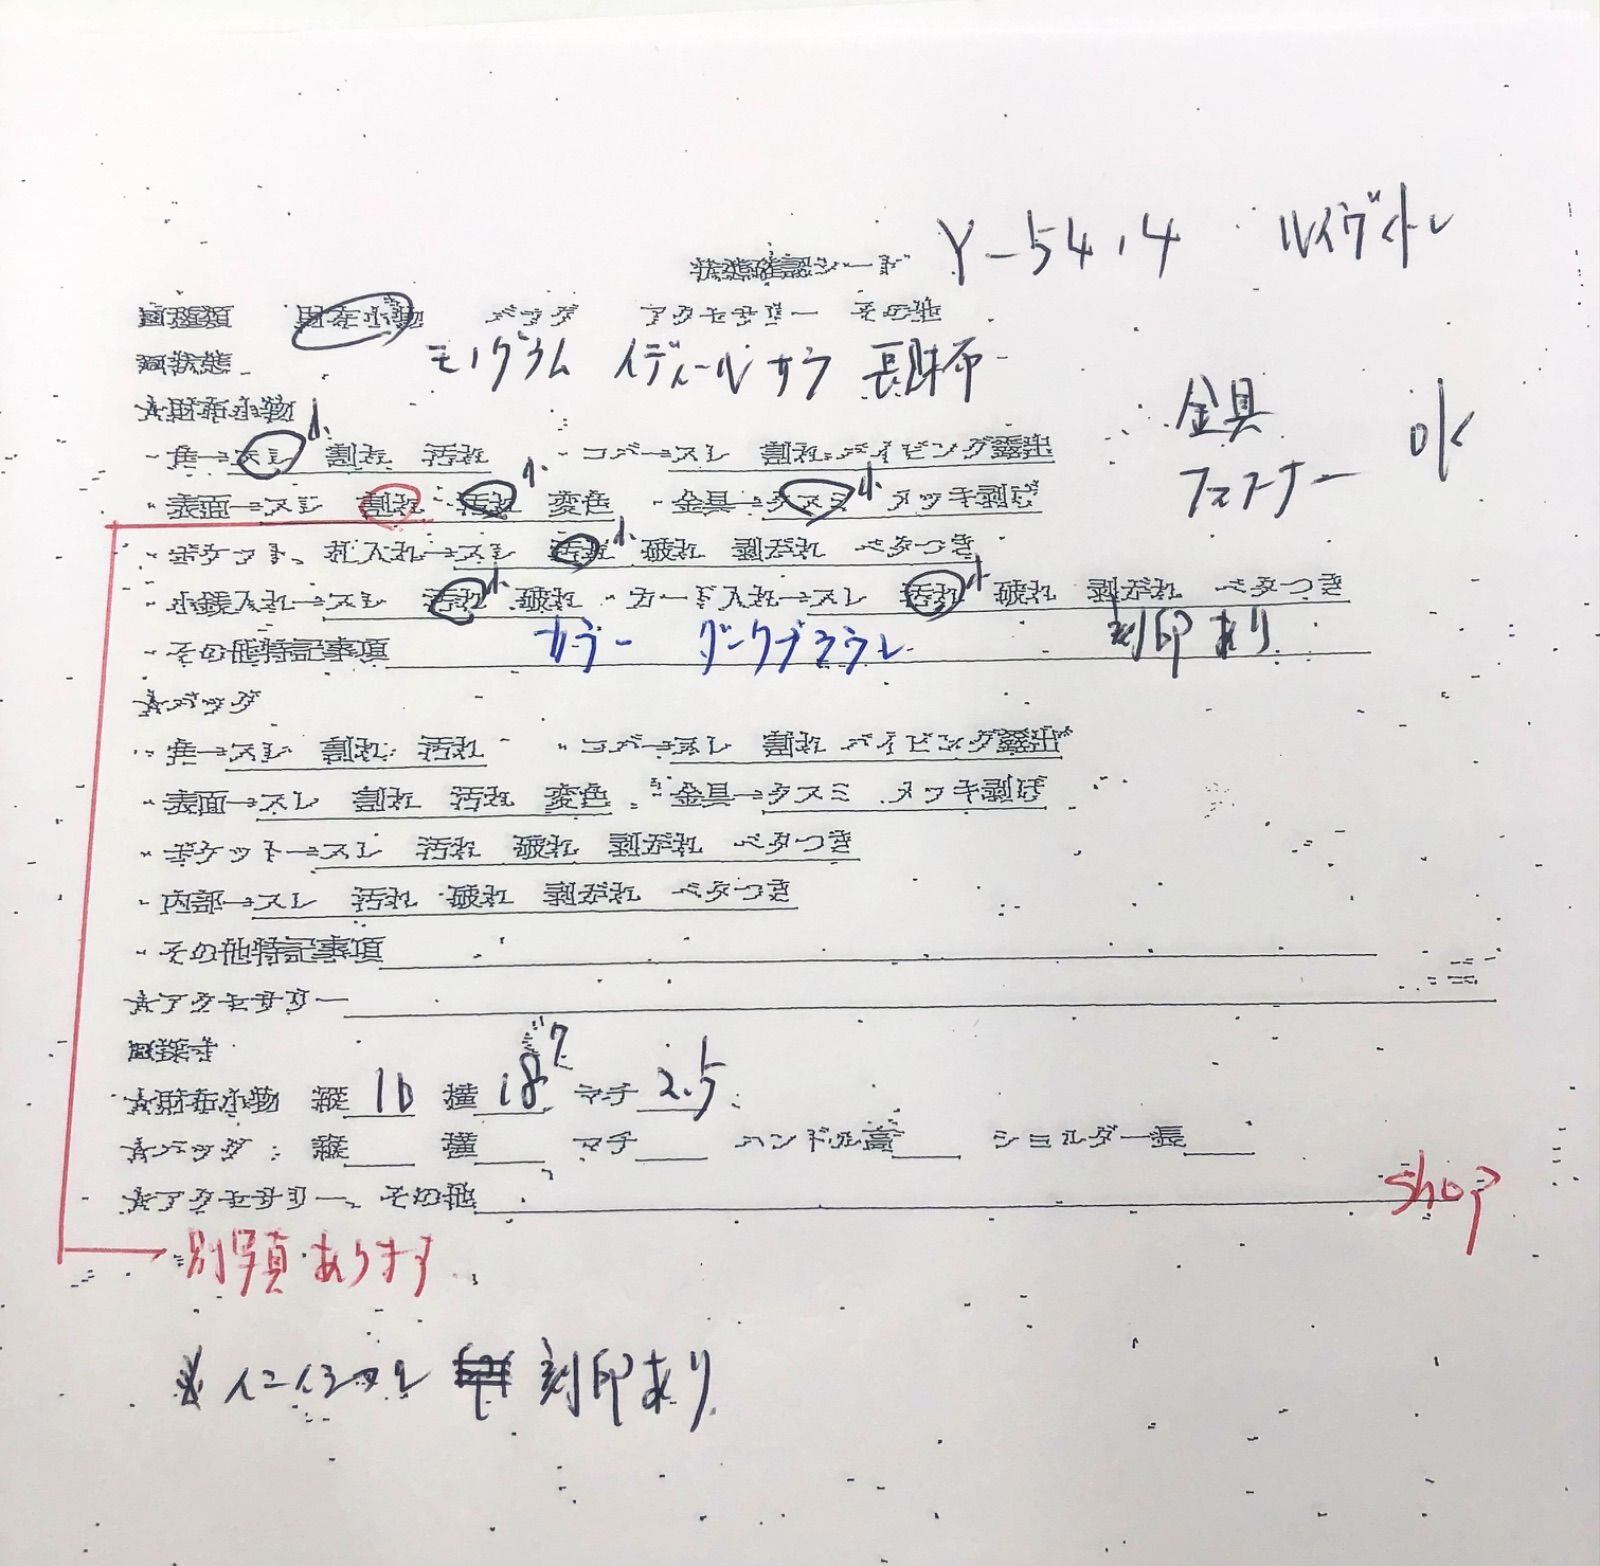 状態確認シート Y-54.4 ルイヴィトン
種類 財布小物 バッグ アクセサリー その他
状態 モノグラム イディール サラ 長財布
★財布小物 金具 ok
・角→スレ 小 割れ 汚れ ・コバ→スレ 割れ パイピング露出 ファスナー
・表面→スレ 割れ 汚れ 小 変色 ・金具→クスミ 小 メッキ剥げ
・ポケット、札入れ→スレ 汚れ 小 破れ 剥がれ ベタつき
・小銭入れ→スレ 汚れ 小 破れ ・カード入れ→スレ 汚れ 小 破れ 剥がれ ベタつき
・その他特記事項 カラー ダークブラウン 刻印あり
★バッグ
・角→スレ 割れ 汚れ ・コバ→スレ 割れ パイピング露出
・表面→スレ 割れ 汚れ 変色 ・金具→クスミ メッキ剥げ
・ポケット→スレ 汚れ 破れ 剥がれ ベタつき
・内部→スレ 汚れ 破れ 剥がれ ベタつき
・その他特記事項
★アクセサリー
採寸
★財布小物 縦 10 横 18 マチ 2.5
★バッグ 縦 横 マチ ハンドル高 ショルダー長
★アクセサリー、その他
shop
別写真あります
※イニシャル 刻印あり